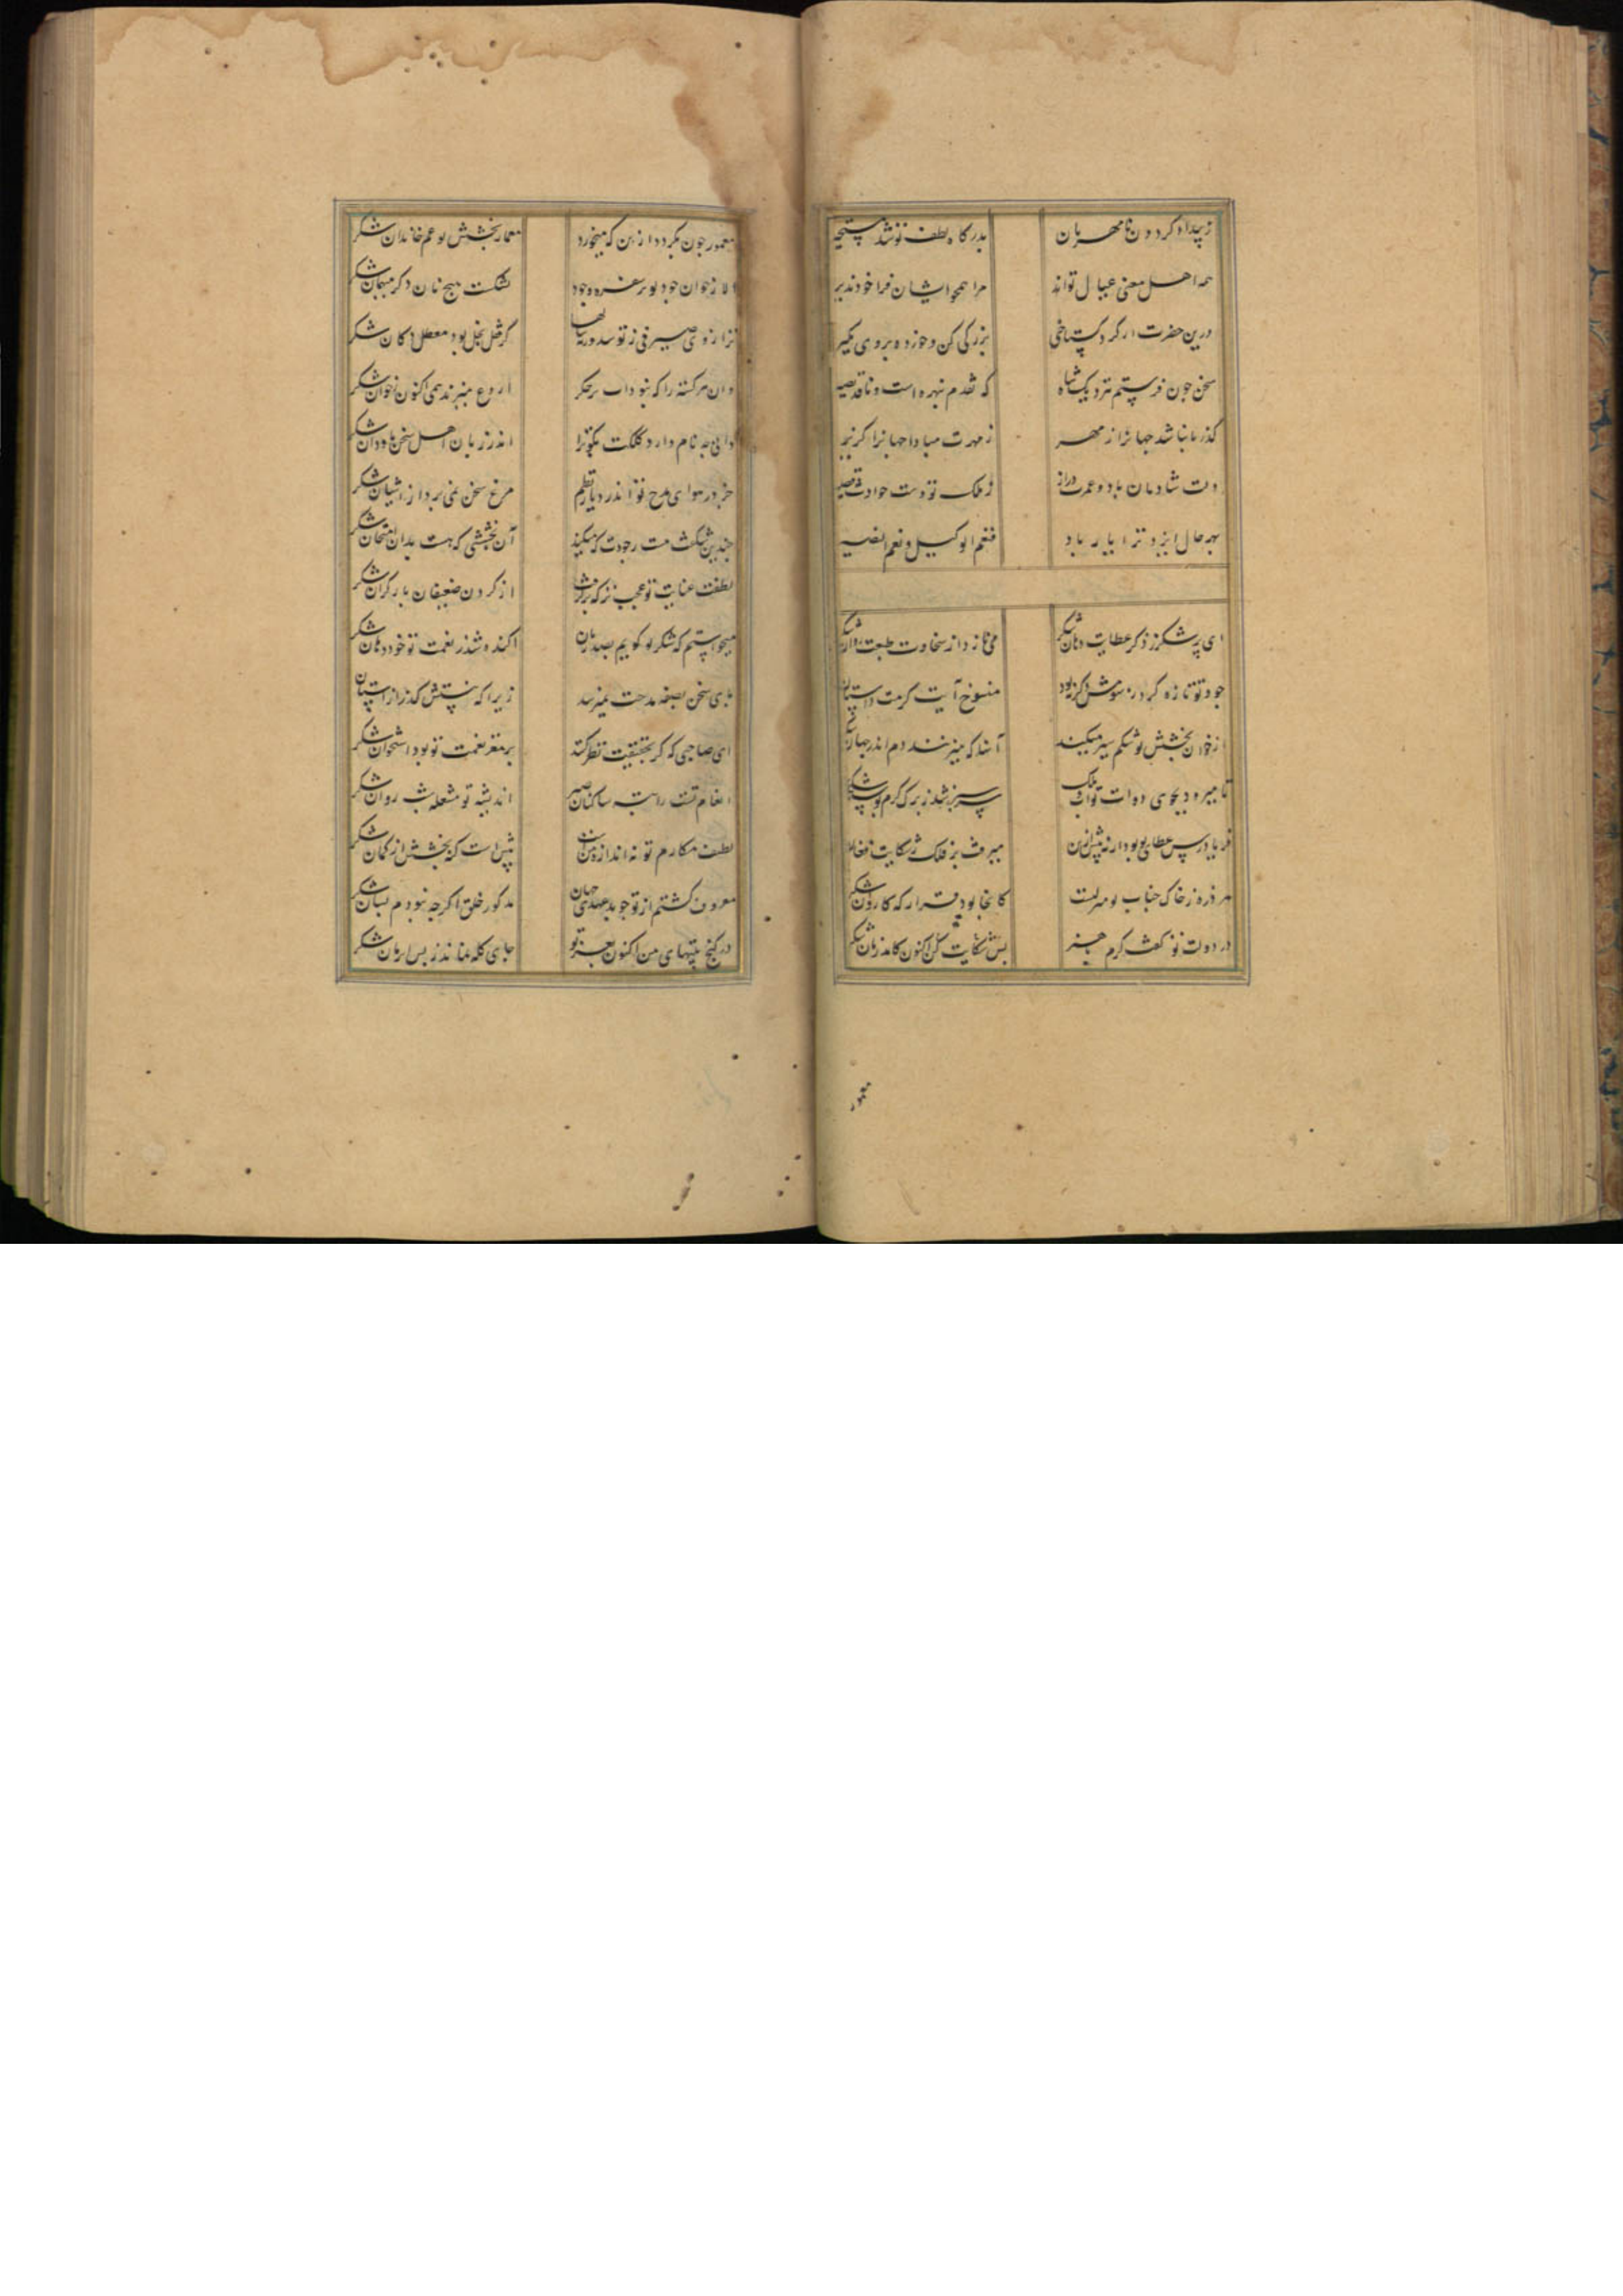 ز بیداد کردون نامهربان بدرکاه لطف تو شد مستجیر
همه اهل معنی عیال تواند مرا همچو ایشان فرا خود پذیر
درین حضرت ار کرد کستاخی بزرکی کن و خرده بر وی مکیر
سخن چون فرستم بنزدیک شاه که نقدم نبهره است و ناقد بصیر
کذر تا نباشد جهانرا ز مهر ز مهرت مبادا جهانرا کزیر
دلت شادمان باد و عمرت دراز ز ملک تو دست حوادث قصیر
بهر حال ایزد ترا یار باد فنعم الوکیل و نعم النصیر
ای پر شکر ز ذکر عطایت دهان شکر می نازد از سخاوت طبعت روان شکر
جود تو تازه کرد منسوخ آیت کرمت داستان
از خوان بخشش تو شکم سیر میکنند آنها که میزنند دم اندر جهان شکر
سرسبز شد ز برک کرم بوستان شکر
میرفت بر فلک ز شکایت فغان
هر ذره ز خاک جناب تو منزلیست کانجا بود قرار که کاروان شکر
در دولت تو کف کرم بس شکایت کن اکنون کامد زمان شکر
معمور چون نکردد ازین که میخورد معمار بخشش تو غم خاندان شکر
الا ز خوان جود تو بر سفره وجود نشکست هیچ نان دکر میهمان شکر
کز قفل بخل بود معطل دکان شکر
وان کرسنه را که نبود آب بر جکر آروغ میزند همی اکنون ز خوان شکر
دانی چه نام دارد کلکت نکوترا اندر زبان اهل سخن ناودان شکر
جز در هوای مدح تو اندر دیار نظم مرغ سخن نمی پرد از آشیان شکر
چندین شکفت نیست ز جودت که میکند آن بخششی که هست بدان امتحان شکر
لطفت عنایت تو عجب نز که برکرفت از کردن ضعیفان بار کران شکر
میخواستم که شکر تو کویم بصد زبان آکنده شد ز نعمت تو خود دهان شکر
پای سخن بصفه مدحت نمیرسد زیرا که نیستش کذر از آستان
ای صاحبی که کر بحقیقت نظر کنند بر مغز نعمت تو بود استخوان شکر
انعام تست راتبه ساکنان صبر اندیشه تو مشعله شب روان شکر
لطف مکارم تو نه اندازه منست بیش است که بخشش از کمان شکر
معروف کشتم از تو جو بد عهدی جهان مذکور خلق اکرچه نبودم بسان شکر
در کنج بیتهای من اکنون بعز تو جای کله نماند ز بس ارمغان شکر
معمور